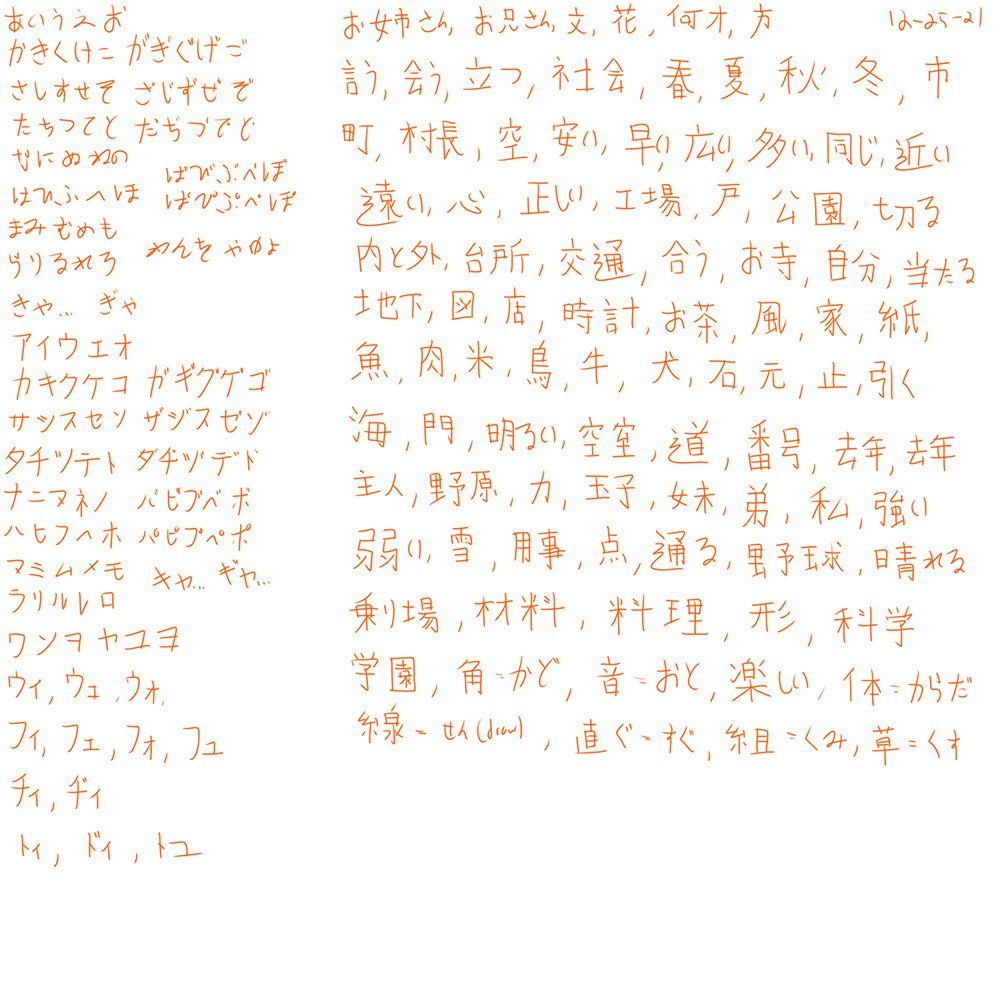 あいうえお
かきくけこ がぎぐげご
さしすせそ ざじずぜぞ
たちつてと だぢづでど
なにぬねの
はひふへほ
ばびぶべぼ
ぱぴぷぺぽ
まみむめも
らりるれろ
わんを ゃゅょ
きゃ... ぎゃ
アイウエオ
カキクケコ ガギグゲゴ
サシスセソ ザジズゼゾ
タチツテト ダヂヅデド
ナニヌネノ バビブベボ
ハヒフヘホ パピプペポ
マミムメモ キャ... ギャ...
ラリルレロ
ワンヲヤユヨ
ウィ, ウェ, ウォ,
フィ, フェ, フォ, フュ
チィ, ヂィ
トィ, ドィ, トユ
お姉さん, お兄さん, 文, 花, 何才, 方
12-25-21
言う, 会う, 立つ, 社会, 春, 夏, 秋, 冬, 市
町, 村長, 空, 安い, 早い, 広い, 多い, 同じ, 近い
遠い, 心, 正しい, 工場, 戸, 公園, 切る
内と外, 台所, 交通, 合う, お寺, 自分, 当たる
地下, 図, 店, 時計, お茶, 風, 家, 紙,
魚, 肉, 米, 鳥, 牛, 犬, 石, 元, 止, 引く
海, 門, 明るい, 空室, 道, 番号, 去年, 去年
主人, 野原, 力, 玉子, 妹, 弟, 私, 強い
弱い, 雪, 用事, 点, 通る, 野球, 晴れる
乗り場, 材料, 料理, 形, 科学
学園, 角=かど, 音=おと, 楽しい, 体=からだ
線=せん(draw), 直ぐ=すぐ, 組=くみ, 草=くす